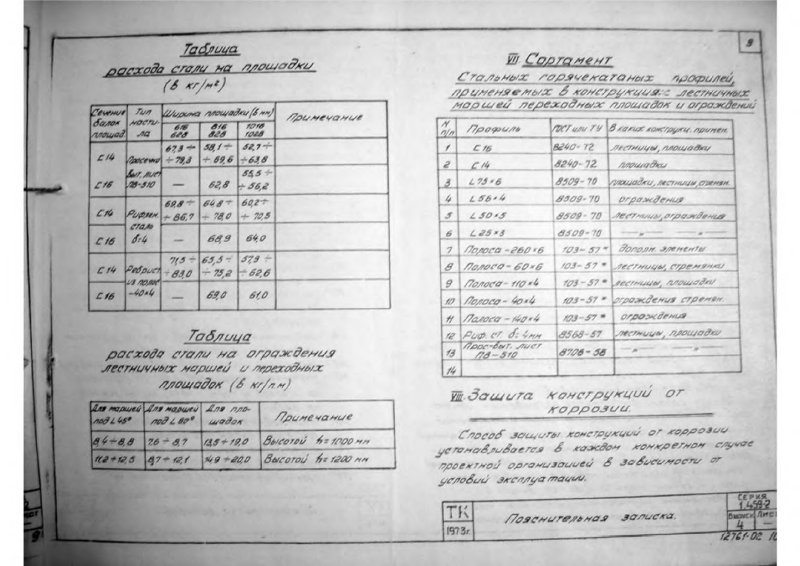 Таблица
расхода стали на площадки
(в кг/м²)
Сечение балок площад. Тип насти-ла Ширина площадки (в мм) Примечание
616 628 816 828 1016 1028
С14 67,3 ÷ ÷ 79,3 58,1 ÷ ÷ 69,6 52,7 ÷ ÷ 63,8
Просечно выт. лист ПВ-510
С16 — 62,8 55,5 ÷ ÷ 56,2
С14 Рифлен. сталь δ=4 69,8 ÷ ÷ 86,7 64,8 ÷ ÷ 78,0 60,2 ÷ ÷ 70,5
С16 — 68,9 64,0
С14 Ребрист из полос -40×4 71,5 ÷ ÷ 83,0 63,5 ÷ ÷ 75,2 57,3 ÷ ÷ 62,6
С16 — 69,0 61,0
Таблица
расхода стали на ограждения
лестничных маршей и переходных
площадок (в кг/п.м)
Для маршей под L45° Для маршей под L60° Для пло-щадок Примечание
8,4 ÷ 8,8 7,6 ÷ 8,7 13,5 ÷ 19,0 Высотой h = 1000 мм
11,2 ÷ 12,5 8,7 ÷ 12,1 14,9 ÷ 20,0 Высотой h = 1200 мм
9
VII. Сортамент
Стальных горячекатаных профилей,
применяемых в конструкциях: лестничных
маршей переходных площадок и ограждений
N п/п Профиль ГОСТ или ТУ В каких конструкц. примен.
1 С 16 8240-72 лестницы, площадки
2 С 14 8240-72 площадки
3 L 75×6 8509-70 площадки, лестницы, стремян.
4 L 56×4 8509-70 ограждения
5 L 50×5 8509-70 лестницы, ограждения
6 L 25×3 8509-70 —〃— —〃—
7 Полоса -260×6 103-57* Дополн. элементы
8 Полоса -60×6 103-57* лестницы, стремянки
9 Полоса -110×4 103-57* лестницы, площадки
10 Полоса -40×4 103-57* ограждения стремян.
11 Полоса -140×4 103-57* ограждения
12 Риф. ст δ=4мм 8568-57 лестницы, площадки
13 Прос-выт. лист ПВ-510 8706-58 —〃— —〃—
14
VIII. Защита конструкций от
коррозии.
Способ защиты конструкций от коррозии
устанавливается в каждом конкретном случае
проектной организацией в зависимости от
условий эксплуатации.
ТК
1973г.
Пояснительная записка.
СЕРИЯ
1.459-2
Выпуск Лист
4 —
12761-02 10